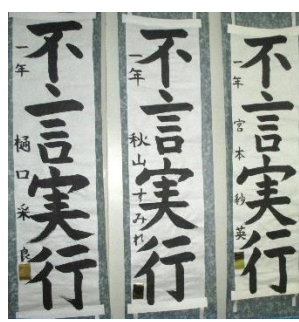 不言実行
一年 樋口采良
不言実行
一年 秋山すみれ
不言実行
一年 宮本紗英